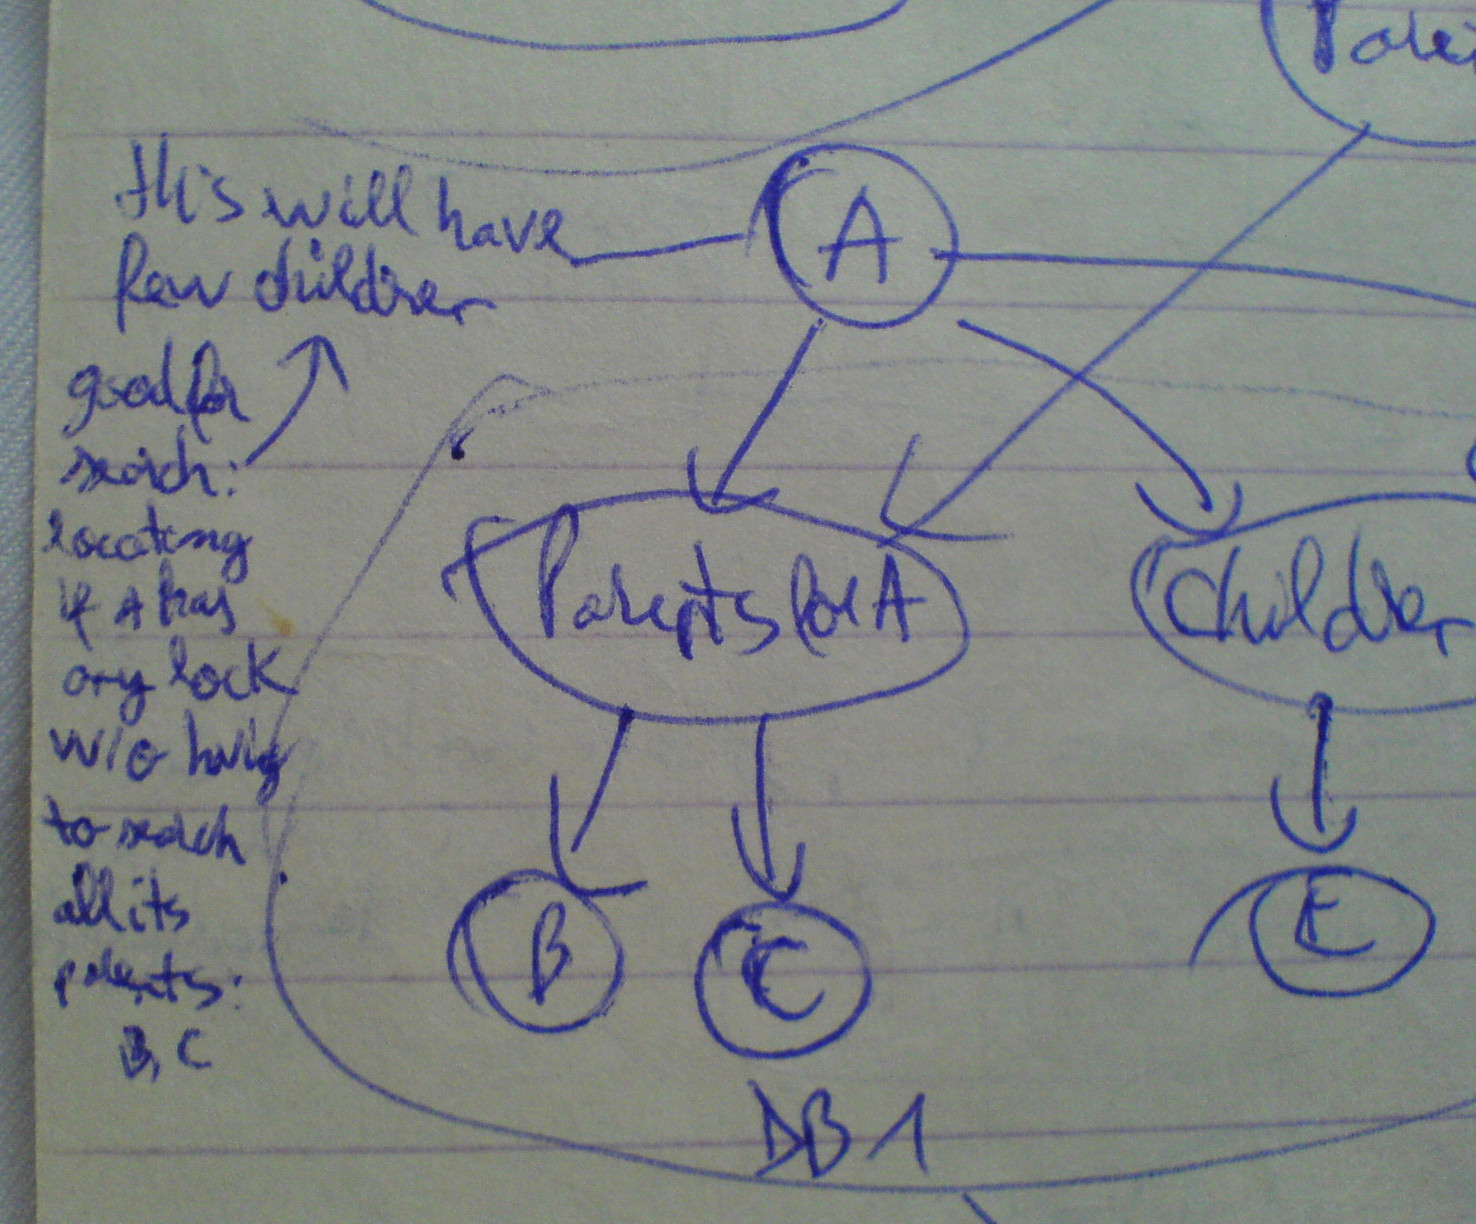 Paren
this will have
few children
A
good for
search:
locating
if A has
any lock
w/o havig
to search
all its
parents:
B, C
Parents for A
Children
B
C
E
DB 1